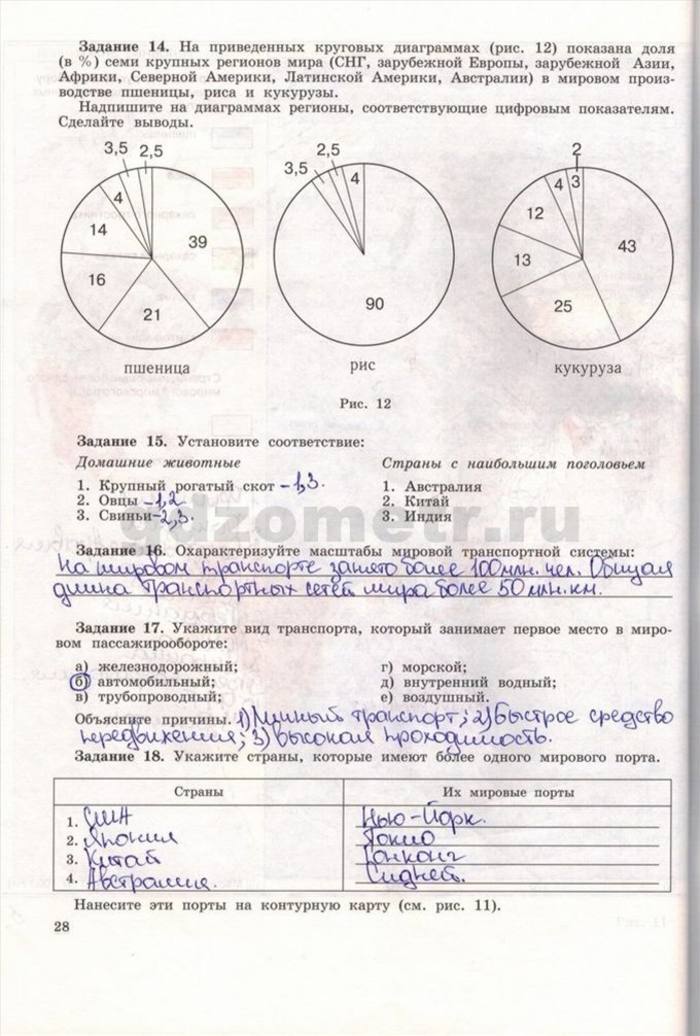 Задание 14. На приведенных круговых диаграммах (рис. 12) показана доля
(в %) семи крупных регионов мира (СНГ, зарубежной Европы, зарубежной Азии,
Африки, Северной Америки, Латинской Америки, Австралии) в мировом произ-
водстве пшеницы, риса и кукурузы.
Надпишите на диаграммах регионы, соответствующие цифровым показателям.
Сделайте выводы.
3,5 2,5
4
14
39
16
21
пшеница
2,5
3,5
4
90
рис
2
4 3
12
43
13
25
кукуруза
Рис. 12
Задание 15. Установите соответствие:
Домашние животные Страны с наибольшим поголовьем
1. Крупный рогатый скот – 1,3. 1. Австралия
2. Овцы – 1,2 2. Китай
3. Свиньи – 2,3. 3. Индия
gdzometr.ru
Задание 16. Охарактеризуйте масштабы мировой транспортной системы:
На мировом транспорте занято более 100 млн. чел. Общая
длина транспортных сетей мира более 50 млн. км.
Задание 17. Укажите вид транспорта, который занимает первое место в миро-
вом пассажирообороте:
а) железнодорожный; г) морской;
б) автомобильный; д) внутренний водный;
в) трубопроводный; е) воздушный.
Объясните причины. 1) Личный транспорт; 2) Быстрое средство
передвижения; 3) высокая проходимость.
Задание 18. Укажите страны, которые имеют более одного мирового порта.
Страны Их мировые порты
1. США Нью-Йорк.
2. Япония Токио
3. Китай Гонконг
4. Австралия. Сидней.
Нанесите эти порты на контурную карту (см. рис. 11).
28